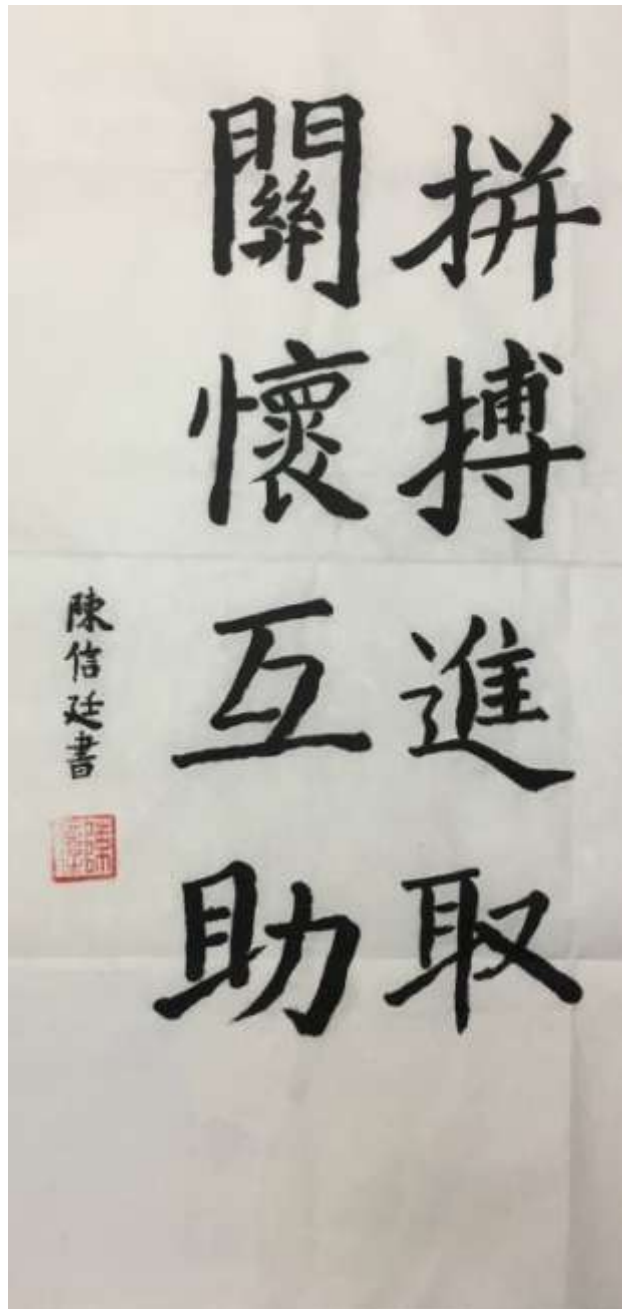 拼搏進取
關懷互助
陳信廷書